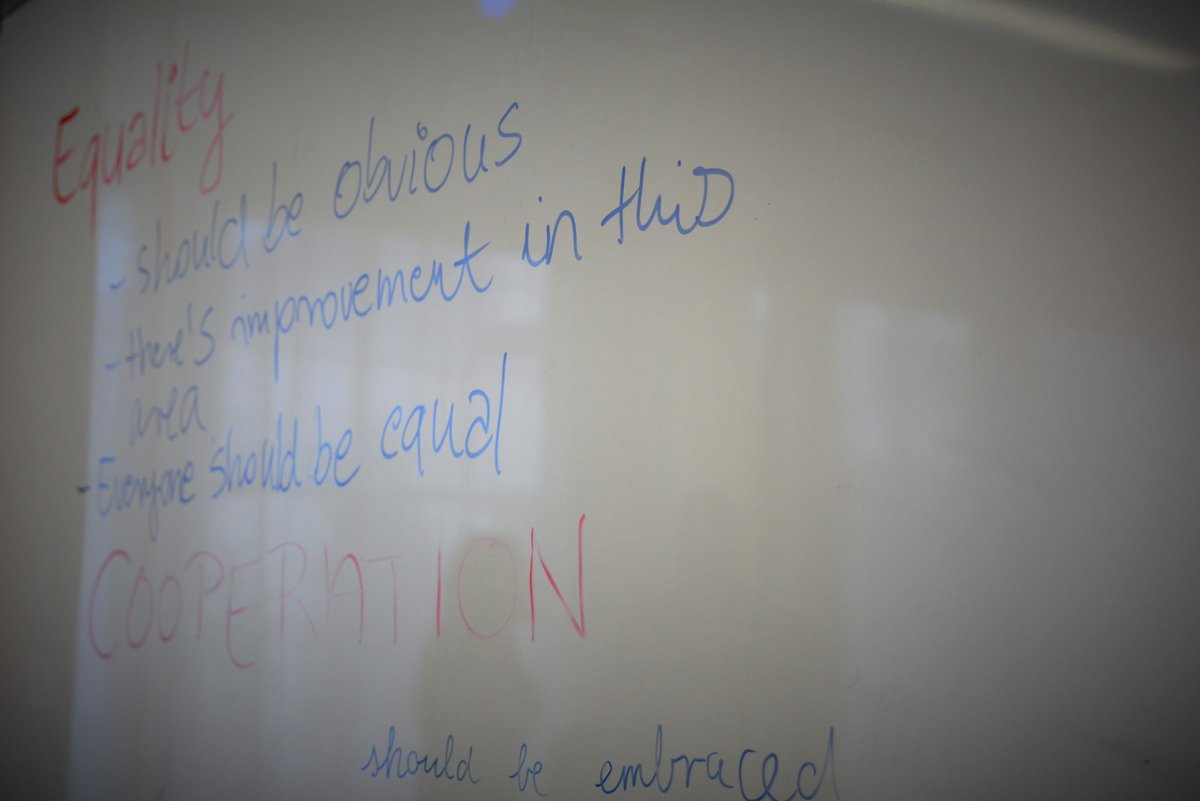 Equality
- should be obvious
- there's improvement in this
area
- Everyone should be equal
COOPERATION
should be embraced